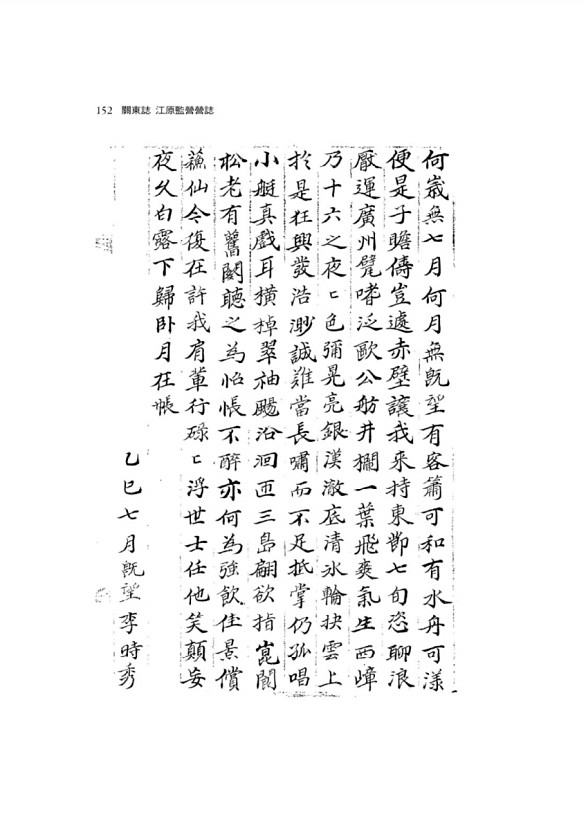 152 關東誌 江原監營營誌
何歲無七月何月無旣望有客簫可和有水舟可漾
便是子瞻儔豈遽赤壁讓我來持東節七旬恣聊浪
厭運廣州甓嗜泛歐公舫井欄一葉飛爽氣生西嶂
乃十六之夜〻色彌晃亮銀漢澈底清氷輪抉雲上
於是狂興發浩渺誠難當長嘯而不足抵掌仍孤唱
小艇真戲耳橫棹翠袖颺沿洄匝三島翩欲指崑閬
松老有舊闋聽之為怊悵不醉亦何為強飲佳景償
蘓仙今復在許我肩輩行碌〻浮世士任他笑顛妄
夜久白露下歸卧月在帳
乙巳七月旣望李時秀